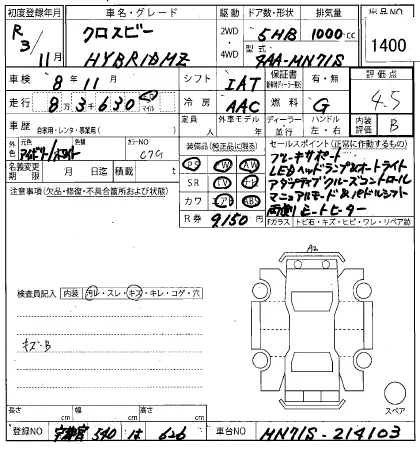 初度登録年月 車名・グレード 駆動 ドア数・形状 排気量 出品NO
R3/11月 クロスビー HYBRIDMZ 2WD・4WD 5HB 1000cc 1400
型式 4AA-MN71S
車検 8年11月 シフト IAT 保証書 有・無 評価点
走行 8万3千630 km マイル 冷房 AAC 燃料 G 4.5
車歴 自家用・レンタ・事業用( ) 定員 人 外車モデル 年 ディーラー・並行 ハンドル 左・右 内装評価 B
外色 元色 カラーNO C7G
装備品(純正品に限る) セールスポイント(正常に作動するもの)
名義変更期限 月 日 積載 t
PS PW AW
ブレーキサポート
LEDヘッドランプ&オートライト
注意事項(欠品・修復・不具合箇所および状態)
SR TV ナビ
アダプティブクルーズコントロール
カワ エアB ABS
マニュアルモード&パドルシフト
R券 9,150円
両側シートヒーター
Fガラス トビ石・キズ・ヒビ・ワレ・リペア跡
A2
検査員記入 内装 汚レ・スレ・キズ・キレ・コゲ・穴
キズ・B
スペア
長さ cm 幅 cm 高さ cm
登録NO 宇都宮 540 は 626 車台NO MN71S-214103